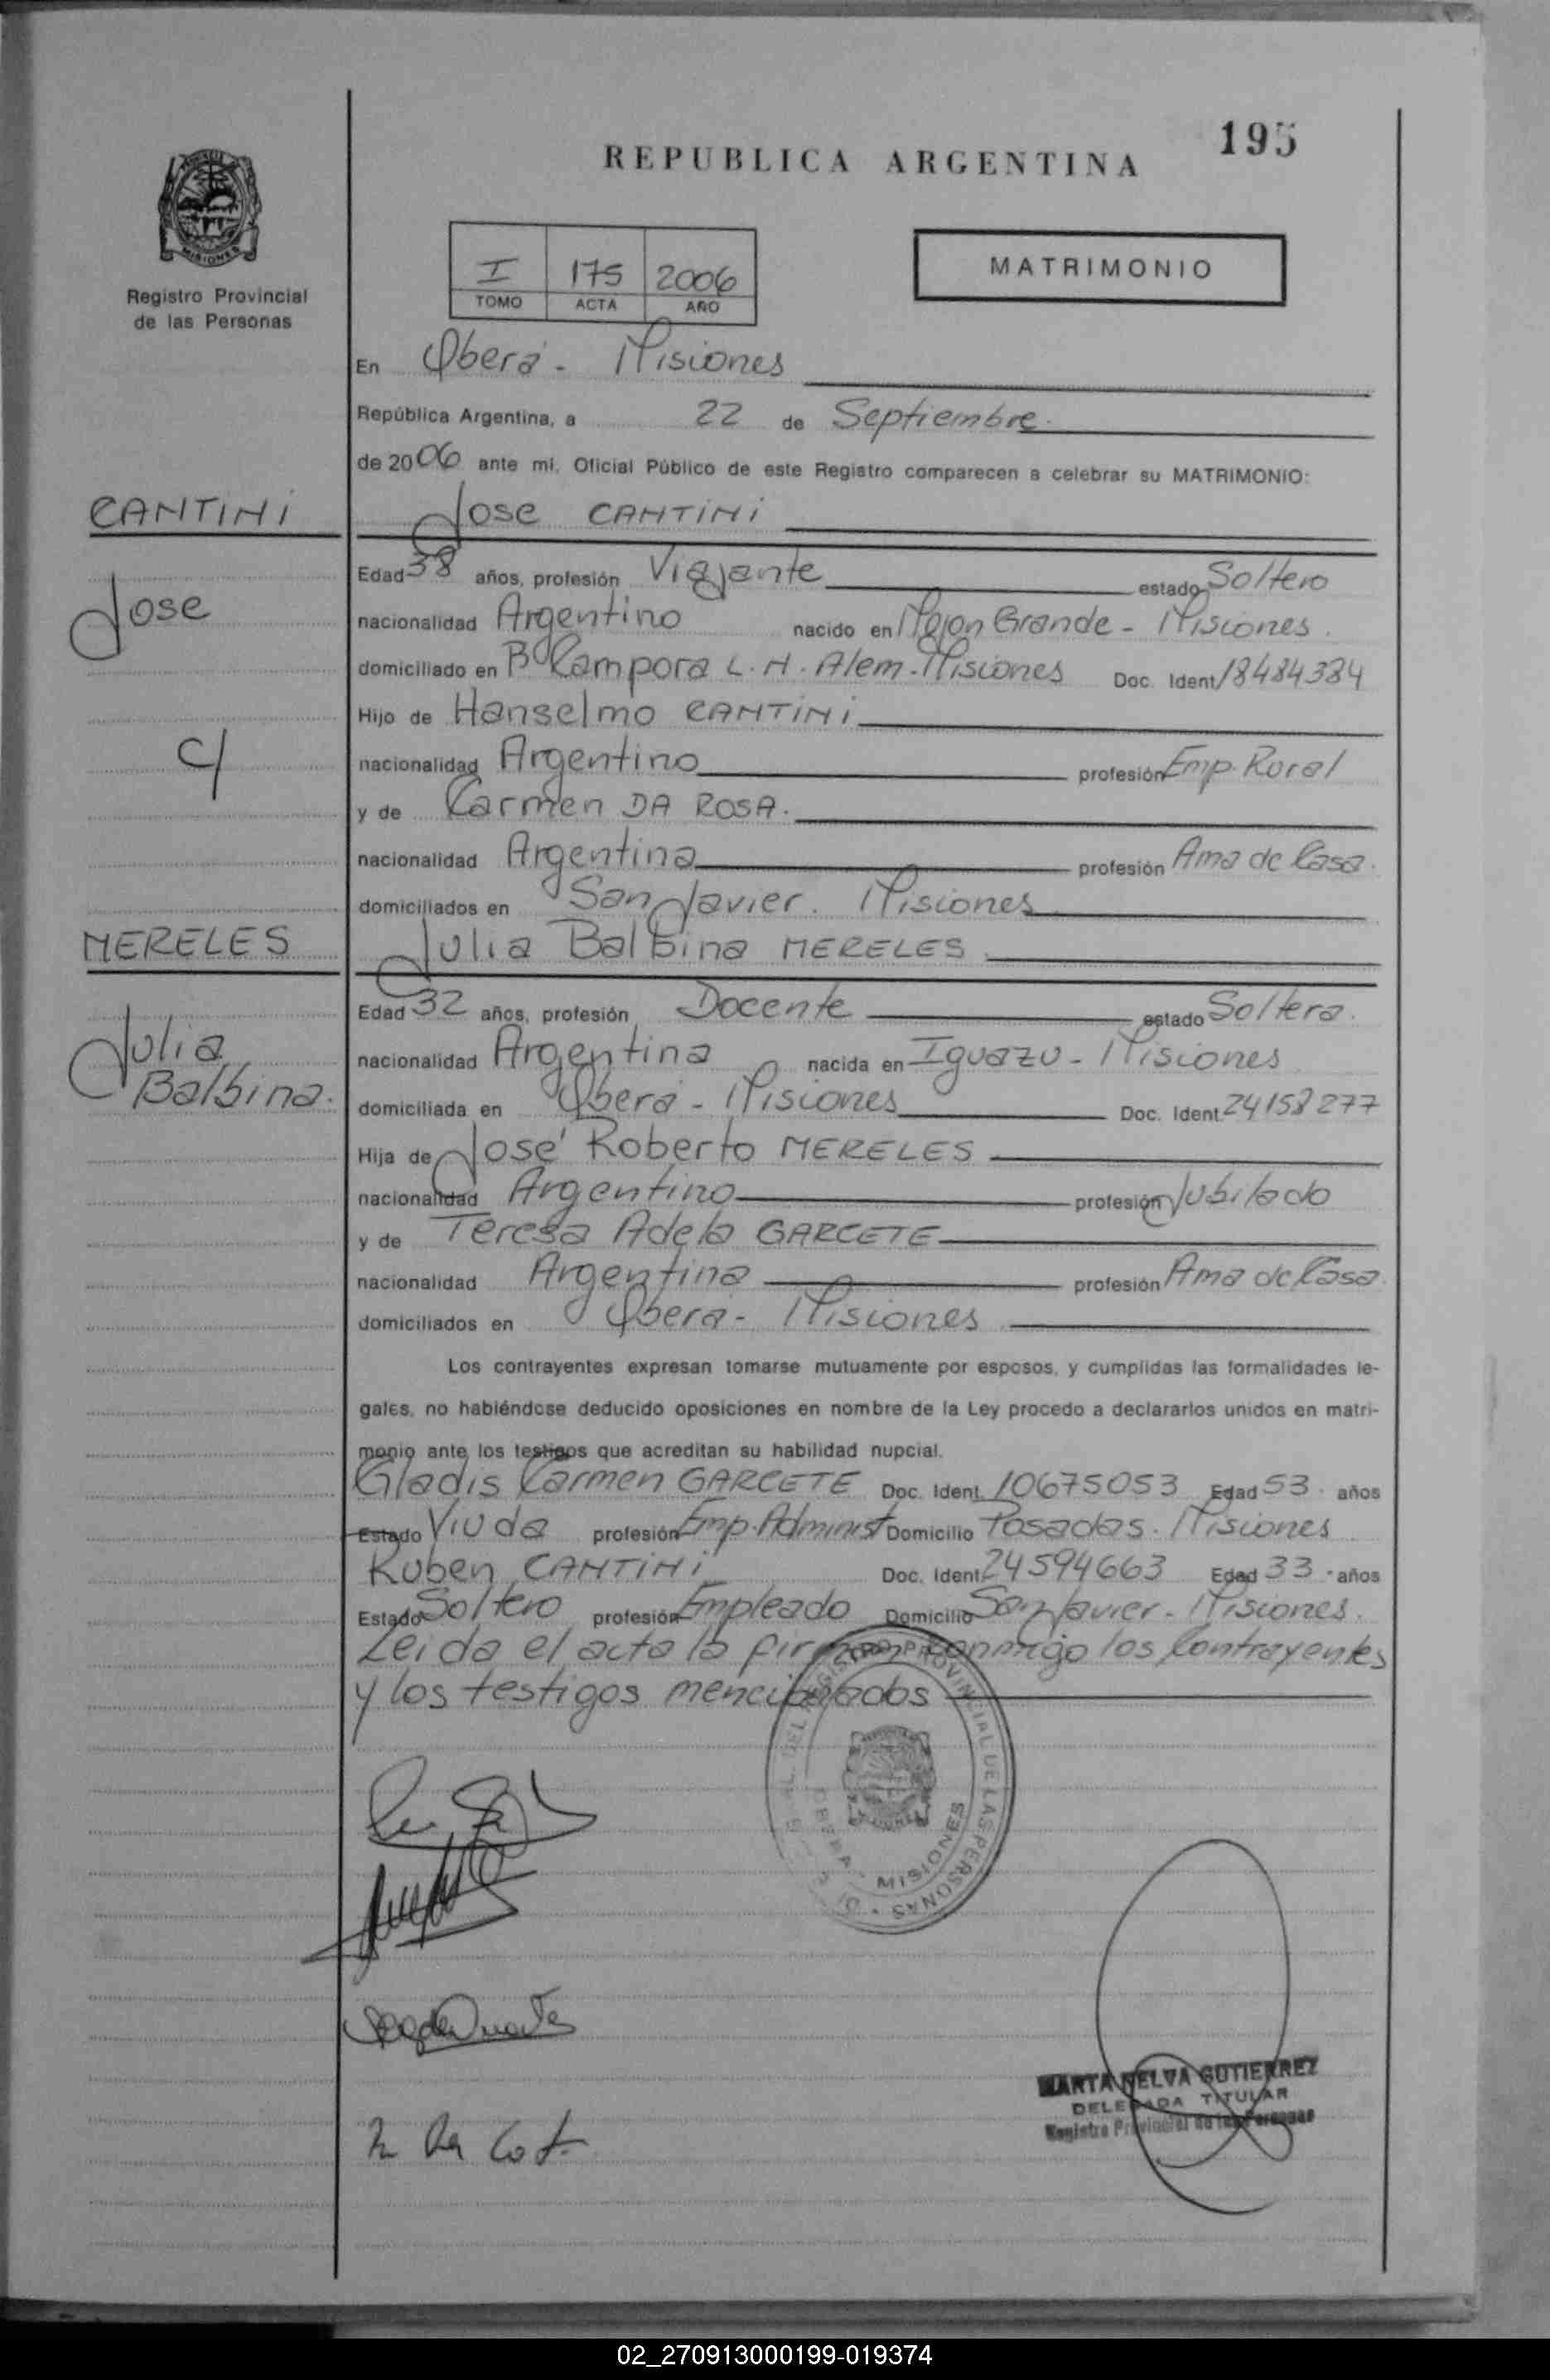 195
REPUBLICA ARGENTINA
Registro Provincial
de las Personas
I 175 2006
TOMO ACTA AÑO
MATRIMONIO
En Oberá - Misiones
República Argentina, a 22 de Septiembre
de 2006 ante mí, Oficial Público de este Registro comparecen a celebrar su MATRIMONIO:
CANTINI
Jose
C/
MERELES
Julia
Balbina.
Jose CANTINI
Edad 38 años, profesión Viajante estado Soltero
nacionalidad Argentino nacido en Mojon Grande - Misiones
domiciliado en Bº Campora L. N. Alem - Misiones Doc. Ident 18484384
Hijo de Hanselmo CANTINI
nacionalidad Argentino profesión Emp. Rural
y de Carmen DA ROSA.
nacionalidad Argentina profesión Ama de Casa.
domiciliados en San Javier. Misiones
Julia Balbina MERELES
Edad 32 años, profesión Docente estado Soltera.
nacionalidad Argentina nacida en Iguazu - Misiones
domiciliada en Oberá - Misiones Doc. Ident. 24158277
Hija de José Roberto MERELES
nacionalidad Argentino profesión Jubilado
y de Teresa Adela GARCETE
nacionalidad Argentina profesión Ama de Casa
domiciliados en Oberá - Misiones
Los contrayentes expresan tomarse mutuamente por esposos, y cumplidas las formalidades le-
gales, no habiéndose deducido oposiciones en nombre de la Ley procedo a declararlos unidos en matri-
monio ante los testigos que acreditan su habilidad nupcial.
Gladis Carmen GARCETE Doc. Ident. 10675053 Edad 53 años
Estado Viuda profesión Emp. Administ Domicilio Posadas. Misiones
Ruben CANTINI Doc. Ident. 24594663 Edad 33 años
Estado Soltero profesión Empleado Domicilio San Javier - Misiones.
Leida el acta la firman conmigo los Contrayentes
y los testigos mencionados
DEL REGISTRO PROVINCIAL DE LAS PERSONAS
OBERA - MISIONES
MARTA NELVA GUTIERREZ
DELEGADA TITULAR
Registro Provincial de las Personas
02_270913000199-019374